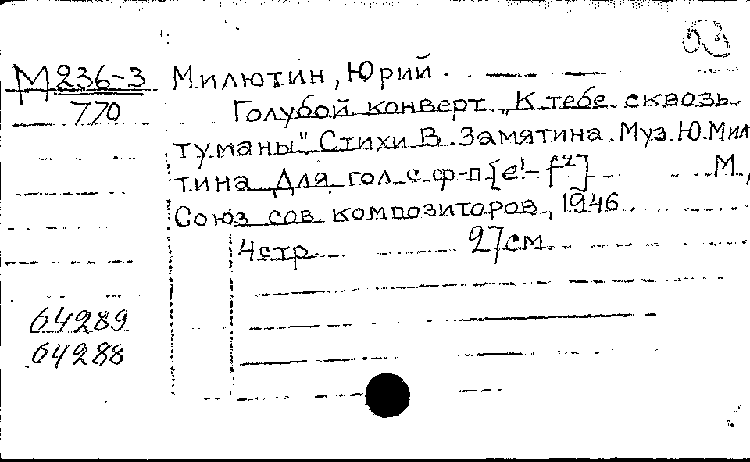 63
М 236-3 Милютин, Юрий.
770 Голубой конверт. „К тебе сквозь
туманы" Стихи В. Замятина. Муз. Ю. Мил
тина Для гол. с ф-п [e¹-f²] М.,
Союз сов. композиторов, 1946
4 стр. 27 см.
64289
64288